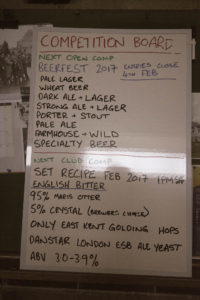 COMPETITION BOARD
NEXT OPEN COMP
BEERFEST 2017 ENTRIES CLOSE
4TH FEB
PALE LAGER
WHEAT BEER
DARK ALE + LAGER
STRONG ALE + LAGER
PORTER + STOUT
PALE ALE
FARMHOUSE + WILD
SPECIALTY BEER
NEXT CLUB COMP
SET RECIPE FEB 2017
ENGLISH BITTER
95% MARIS OTTER
5% CRYSTAL (BREWERS CHOICE)
ONLY EAST KENT GOLDING HOPS
DANSTAR LONDON ESB ALE YEAST
ABV 3.0-3.9%